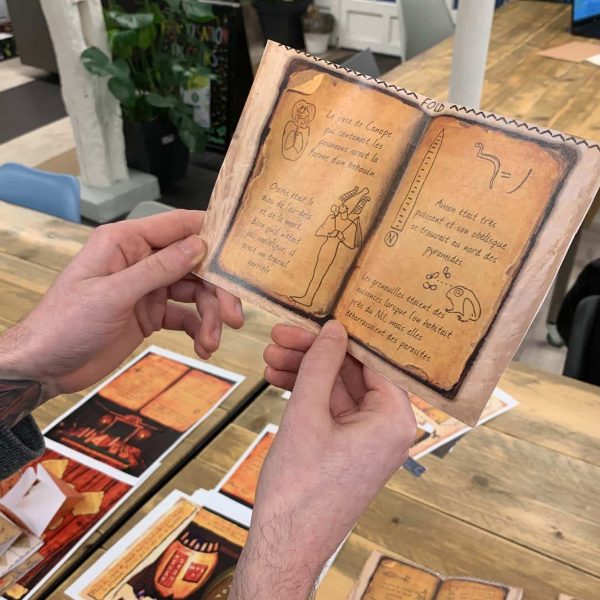 FOLD
Le vase de Canope
qui contenait les
poumons avait la
forme d'un babouin.
Osiris était le
dieu de l'au-delà
et de la mort.
Bien qu'il n'était
pas maléfique, il
avait un travail
horrible.
N
Amon était très
puissant et son obélisque
se trouvait au nord des
pyramides.
Les grenouilles étaient des
nuisances lorsque l'on habitait
près du Nil, mais elles
débarrassaient des parasites.